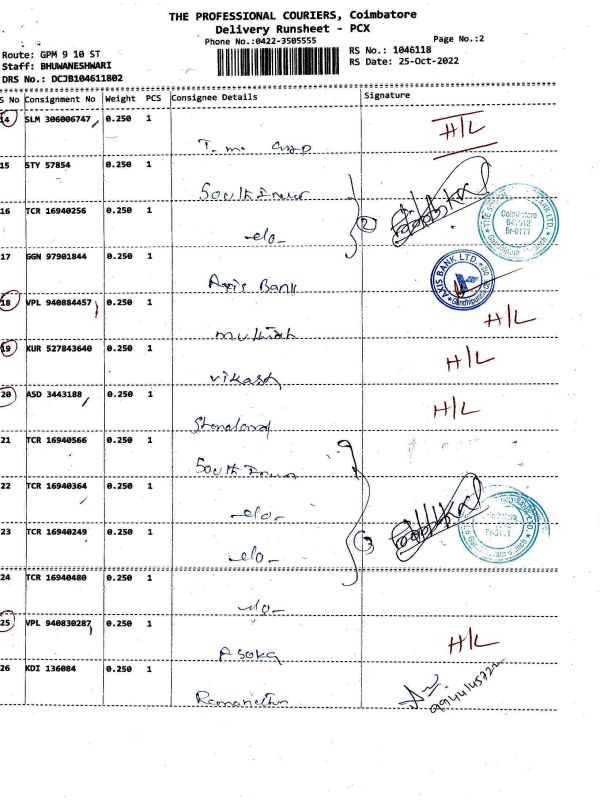 THE PROFESSIONAL COURIERS, Coimbatore
Delivery Runsheet - PCX
Phone No.:0422-3505555
Page No.:2
Route: GPM 9 10 ST
Staff: BHUWANESHWARI
DRS No.: DCJB104611802
RS No.: 1046118
RS Date: 25-Oct-2022
S No Consignment No Weight PCS Consignee Details Signature
14 SLM 306006747 0.250 1 H/L
T. m.
15 STY 57854 0.250 1
South
16 TCR 16940256 0.250 1
-do- 2
17 GGN 97901844 0.250 1
Axis Bank
AXIS BANK LTD.
18 VPL 940884457 0.250 1 H/L
muthiah
19 KUR 527843640 0.250 1 H/L
vikash
20 ASD 3443188 0.250 1 H/L
21 TCR 16940566 0.250 1
South
22 TCR 16940364 0.250 1
-do-
23 TCR 16940249 0.250 1 3
-do-
24 TCR 16940480 0.250 1
-do-
25 VPL 940830287 0.250 1 H/L
Asoka
26 KDI 136084 0.250 1